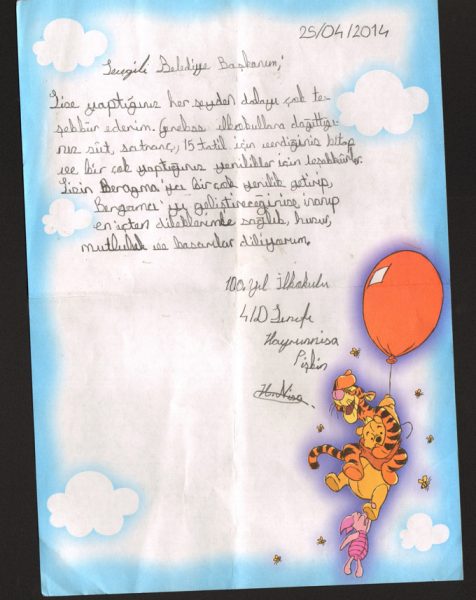 25/04/2014
Sevgili Belediye Başkanım,
Bize yaptığınız her şeyden dolayı çok te-
şekkür ederim. Gerekse ilkokullara dağıttığı-
nız süt, satranç, 15 tatil için verdiğiniz kitap
ve bir çok yaptığınız yenilikler için teşekkürler.
Sizin Bergama'ya bir çok yenilik getirip,
Bergama'yı geliştireceğinize inanıp
en içten dileklerimle sağlık, huzur,
mutluluk ve başarılar diliyorum.
100. Yıl İlkokulu
4/D Sınıfı
Hayrunnisa
Pişkin
H.Nisa